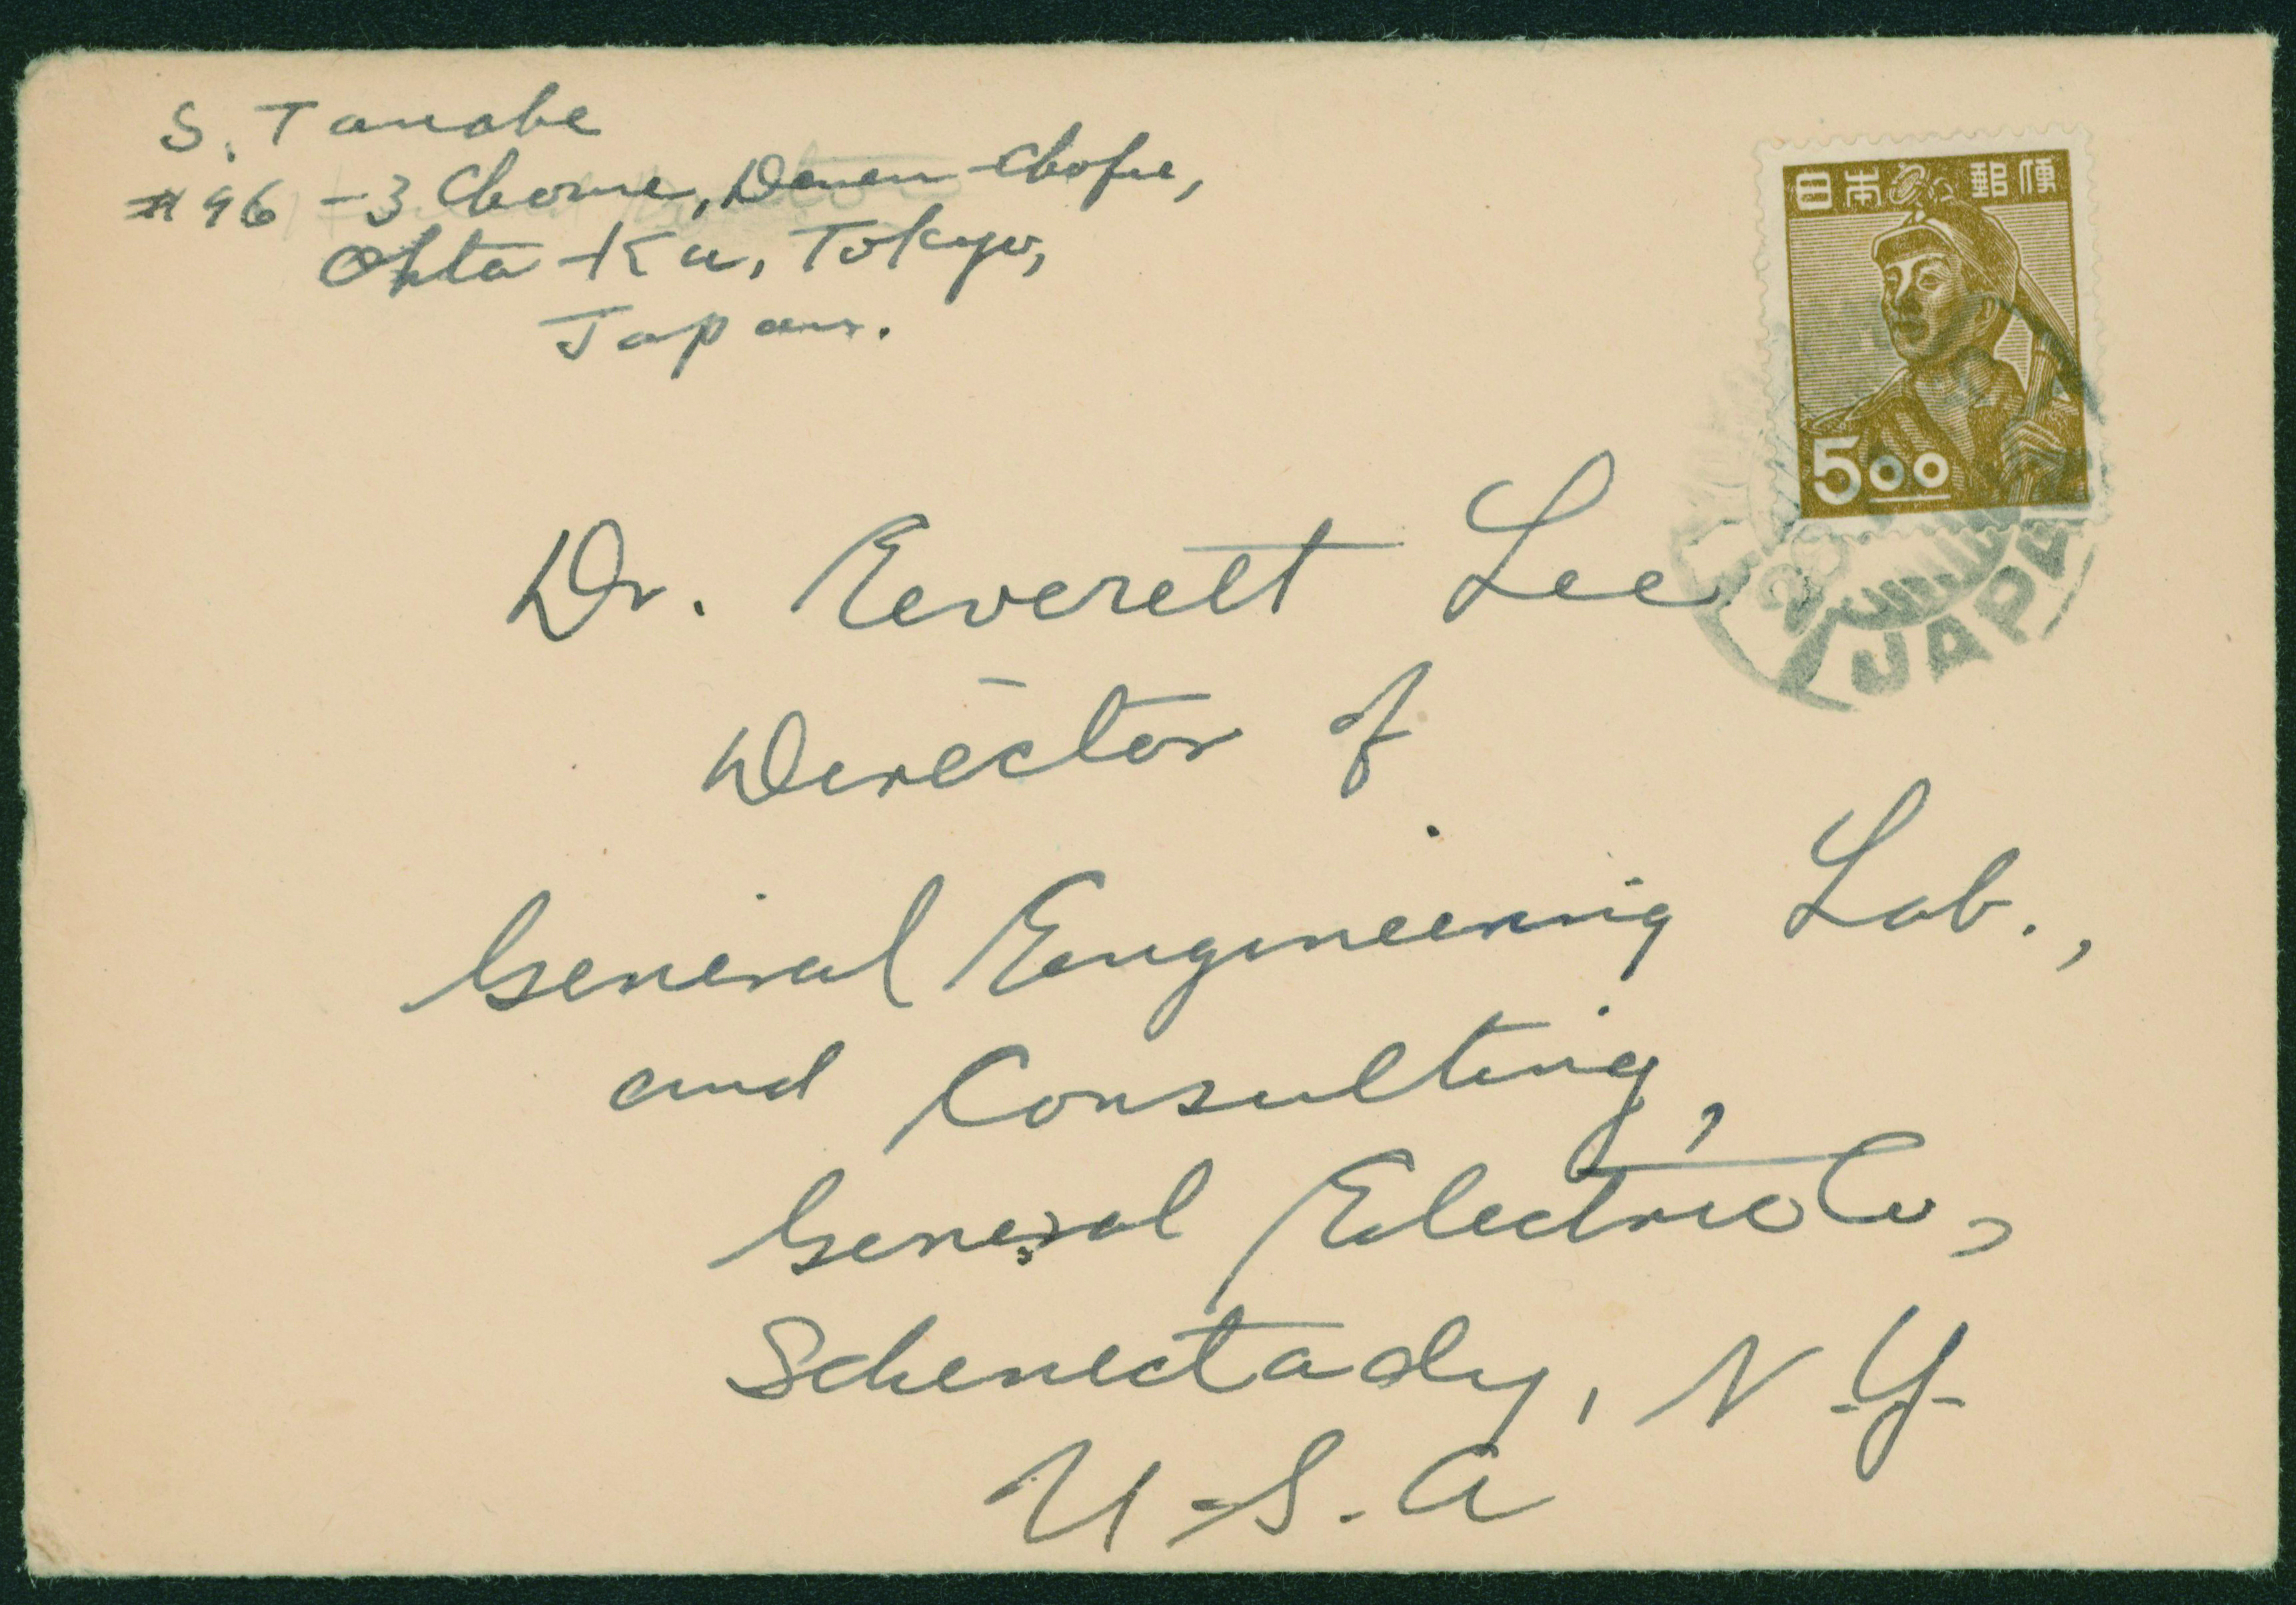 S. Tanabe
#96 - 3 Chome, Denen-Chofu,
Ohta-Ku, Tokyo,
Japan.
日本郵便
5.00
JAPA
Dr. Everett Lee
Director of
General Engineering Lab.,
and Consulting,
General Electric Co,
Schenectady, N.Y.
U.S.A